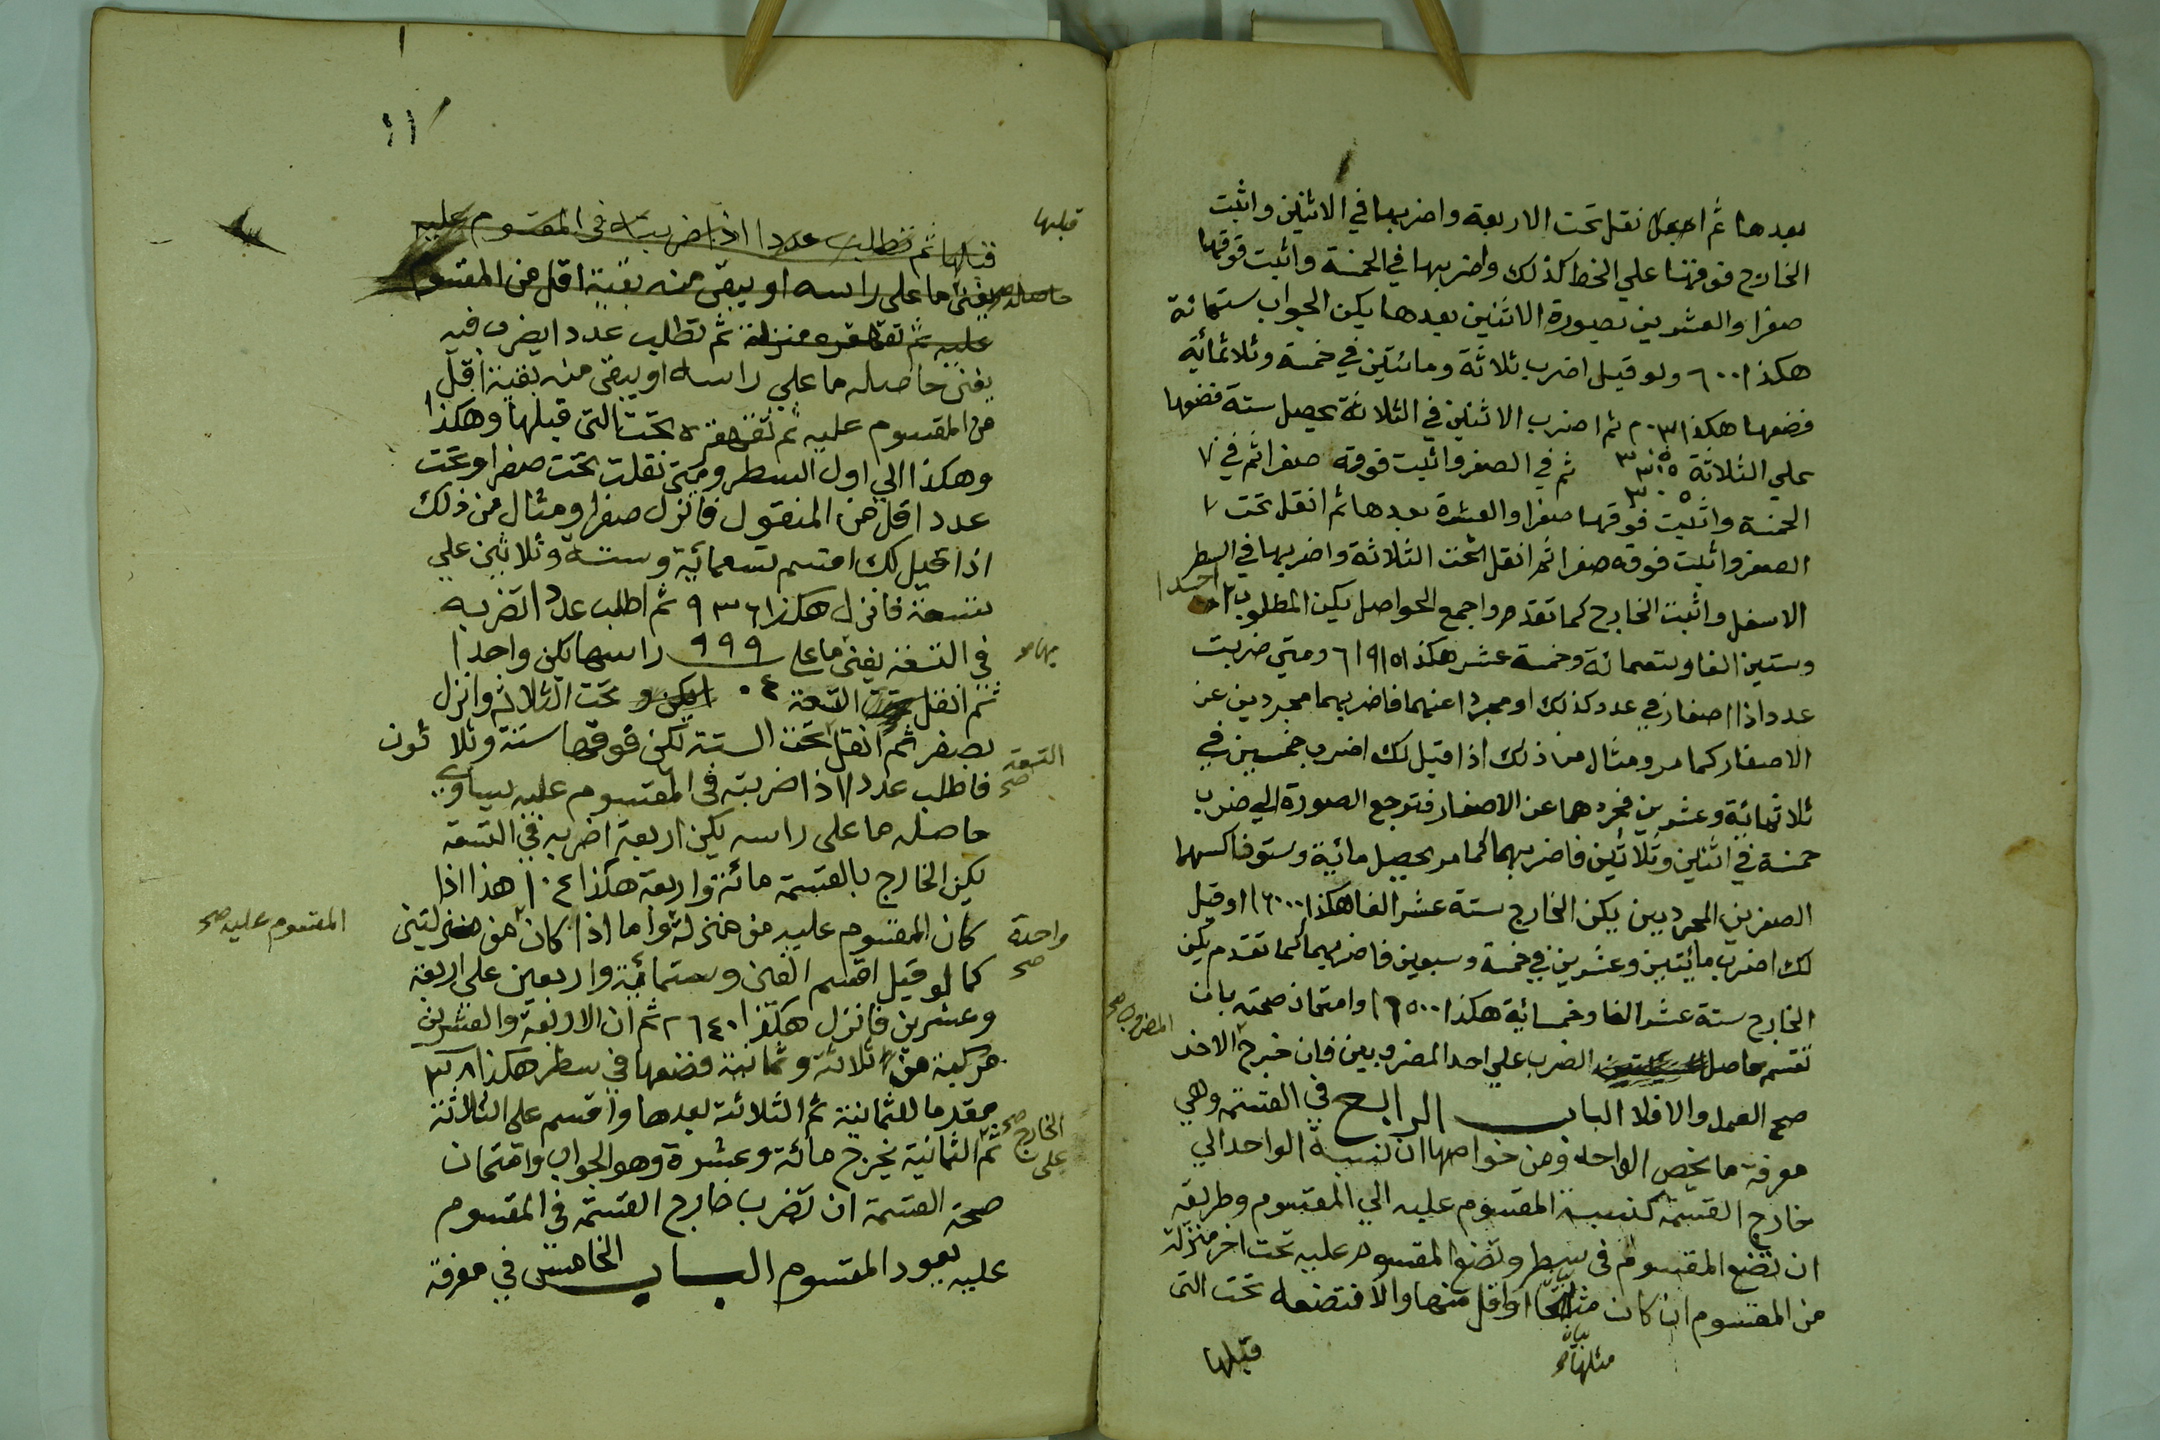 بعدها ثم انقل تحت الاربعة واضربها في الاثنين واثبت
الخارج فوقها علي الخط كذلك واضربها في الخمسة واثبت فوقها
صفرا والعشرين بصورة الاثنين بعدها يكن الجواب ستمائة
هكذا ٦٠٠ ولو قيل اضرب ثلاثة ومائتين في خمسة وثلاثمائة
فضعها هكذا ٢٠٣ ثم اضرب الاثنين في الثلاثة يحصل ستة فضعها
علي الثلاثة ثم في الصفر واثبت فوقه صفرا ثم في
الخمسة واثبت فوقها صفرا والعشرة بعدها ثم انقل تحت
الصفر واثبت فوقه صفرا ثم انقل تحت الثلاثة واضربها في السطر
الاسفل واثبت الخارج كما تقدم واجمع الحواصل يكن المطلوب احدا
وستين الفا وتسعمائة وخمسة عشر هكذا ٦١٩١٥ ومتي ضربت
عددا ذا اصفار في عدد كذلك او مجردا عنهما فاضربهما مجردين عن
الاصفار كما مر ومثال من ذلك اذا قيل لك اضرب خمسين في
ثلاثمائة وعشرين فجردهما عن الاصفار فترجع الصورة الي ضرب
خمسة في اثنين وثلاثين فاضربهما كما مر يحصل مائة وستون فاكسهما
الصفرين المجردين يكن الخارج ستة عشر الفا هكذا ١٦٠٠٠ او قيل
لك اضرب مائتين وعشرين في خمسة وسبعين فاضربهما كما تقدم يكن
الخارج ستة عشر الفا وخمسمائة هكذا ١٦٥٠٠ وامتحان صحته بان
تقسم حاصل الضرب علي احد المضروبين فان خرج الاخر
المضروب صح
صح العمل والا فلا الباب الرابع في القسمة وهي
معرفة ما يخص الواحد ومن خواصها ان نسبة الواحد الي
خارج القسمة كنسبة المقسوم عليه الي المقسوم وطريقه
ان تضع المقسوم في سطر وتضع المقسوم عليه تحت اخر منزلة
من المقسوم ان كان مثلها او اقل منها والا فتضعه تحت التي
بيان
مثلها
قبلها
١١
قبلها ثم تطلب عددا اذا ضربته في المقسوم عليه
قبلها
يفني ما على راسه او يبقى منه بقية اقل من المقسوم
حاصله
عليه ثم تقهقره منزلة ثم تطلب عددا يضرب فيه
يفني حاصله ما علي راسه او يبقى منه بقية اقل
من المقسوم عليه ثم تقهقره تحت التي قبلها وهكذا
وهكذا الي اول السطر ومتى نقلت تحت صفر او تحت
عدد اقل من المنقول فانزل صفرا ومثال من ذلك
اذا قيل لك اقسم تسعمائة وستة وثلاثين علي
تسعة فانزل هكذا ٩٣٦ ثم اطلب عددا تضربه
في التسعة يفني ما على ٩٩٩ راسها يكن واحدا
ثم انقل التسعة ٠٤ تحت الثلاثة وانزل
بصفر ثم انقل تحت الستة تكن فوقها ستة وثلاثون
التسعة صح
فاطلب عددا اذا ضربته في المقسوم عليه يساوي
حاصله ما على راسه يكن اربعة اضربه في التسعة
يكن الخارج بالقسمة مائة واربعة هكذا ١٠٤ هذا اذا
كان المقسوم عليه من منزلة واما اذا كان من منزلتين
واحدة صح
المقسوم عليه صح
كما لو قيل اقسم الفين وستمائة واربعين على اربعة
وعشرين فانزل هكذا ٢٦٤٠ ثم ان الاربعة والعشرين
مركبة من ثلاثة وثمانية فضعها في سطر هكذا ٣٨
مقدما للثمانية ثم الثلاثة بعدها واقسم على الثلاثة
ثم الثمانية يخرج مائة وعشرة وهو الجواب وامتحان
الخارج صح على
صحة القسمة ان تضرب خارج القسمة في المقسوم
عليه يعود المقسوم الباب الخامس في معرفة